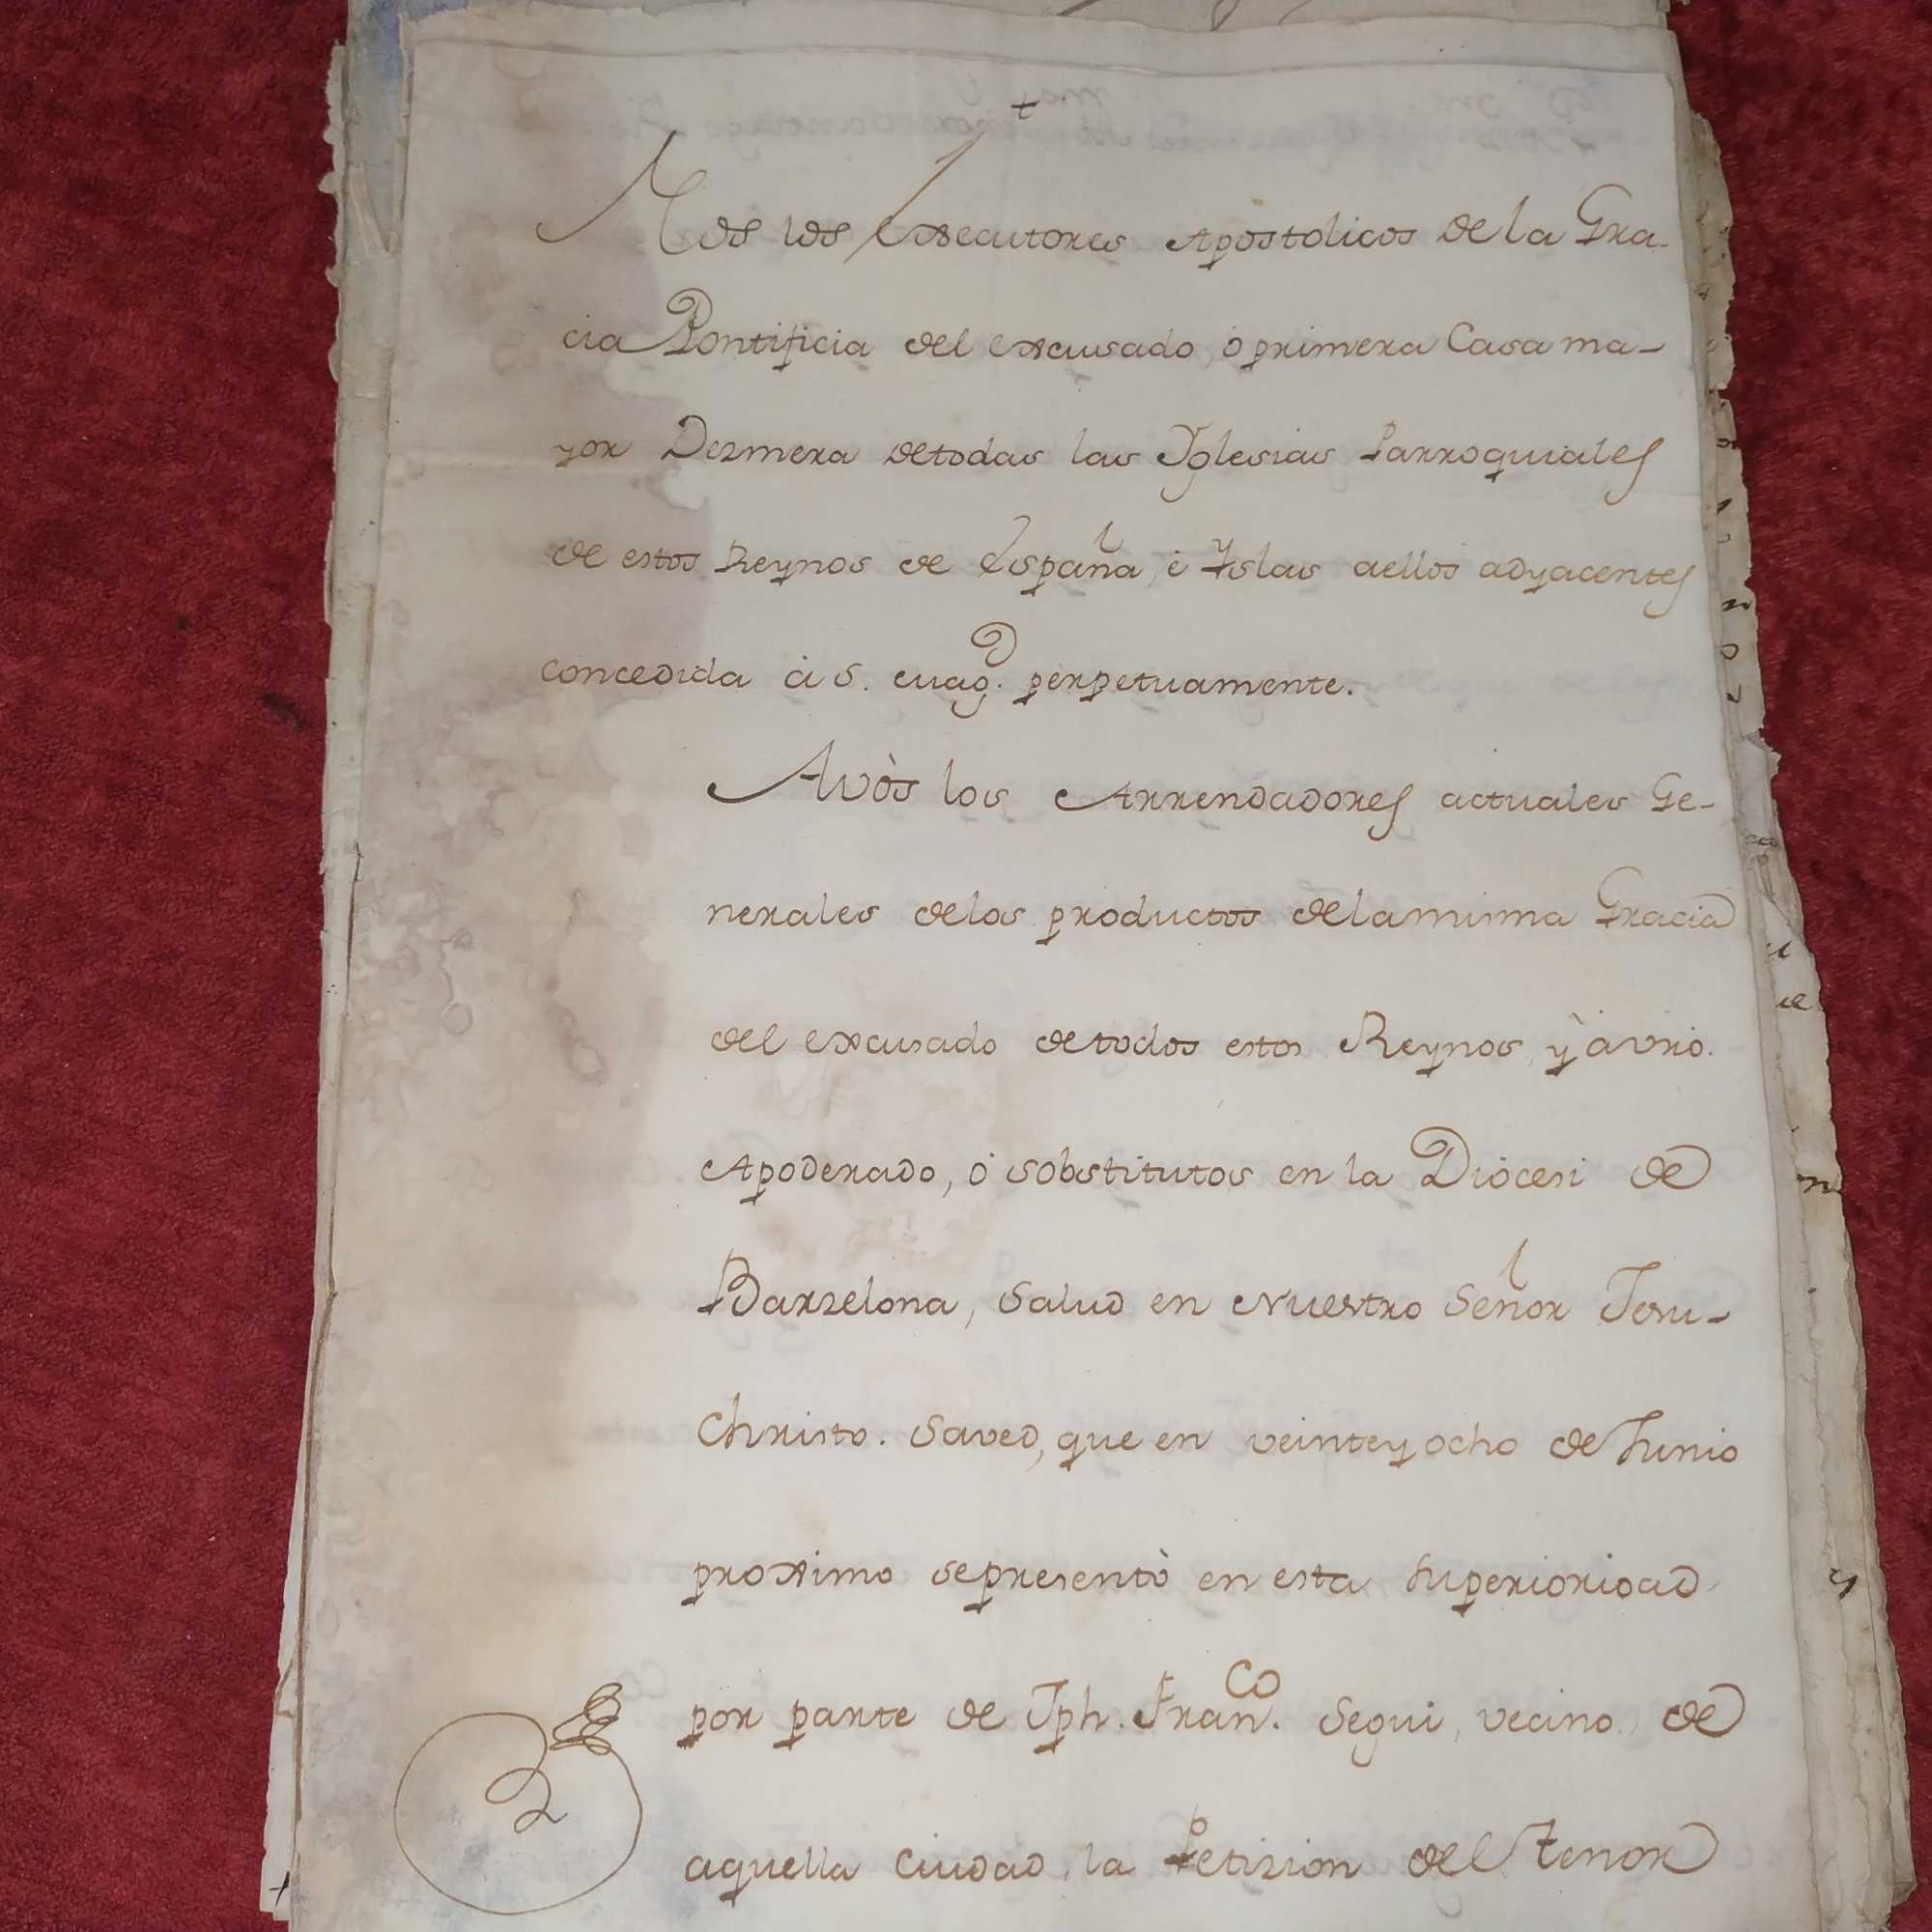 +
Nos los Executores Apostolicos de la Gra-
cia Pontificia del excusado, ó primera Casa ma-
yor Dezmera detodas las Yglesias Parroquiales
de estos Reynos de España, é Yslas aellos adyacentes
concedida á S. Mag.d perpetuamente.
Avòs los Arrendadores actuales Ge-
nerales delos productos delamisma Gracia
del excusado detodos estos Reynos, yàvrõ.
Apoderado, ó sobstitutos en la Diócesi de
Barzelona, Salud en Nuestro Señor Jesu-
Christo. Saved, que en veinteyocho de Junio
proximo sepresentò en esta Superioridad
por parte de Jph. Fran.co Segui, vecino de
aquella Ciudad, la Petizion del tenor